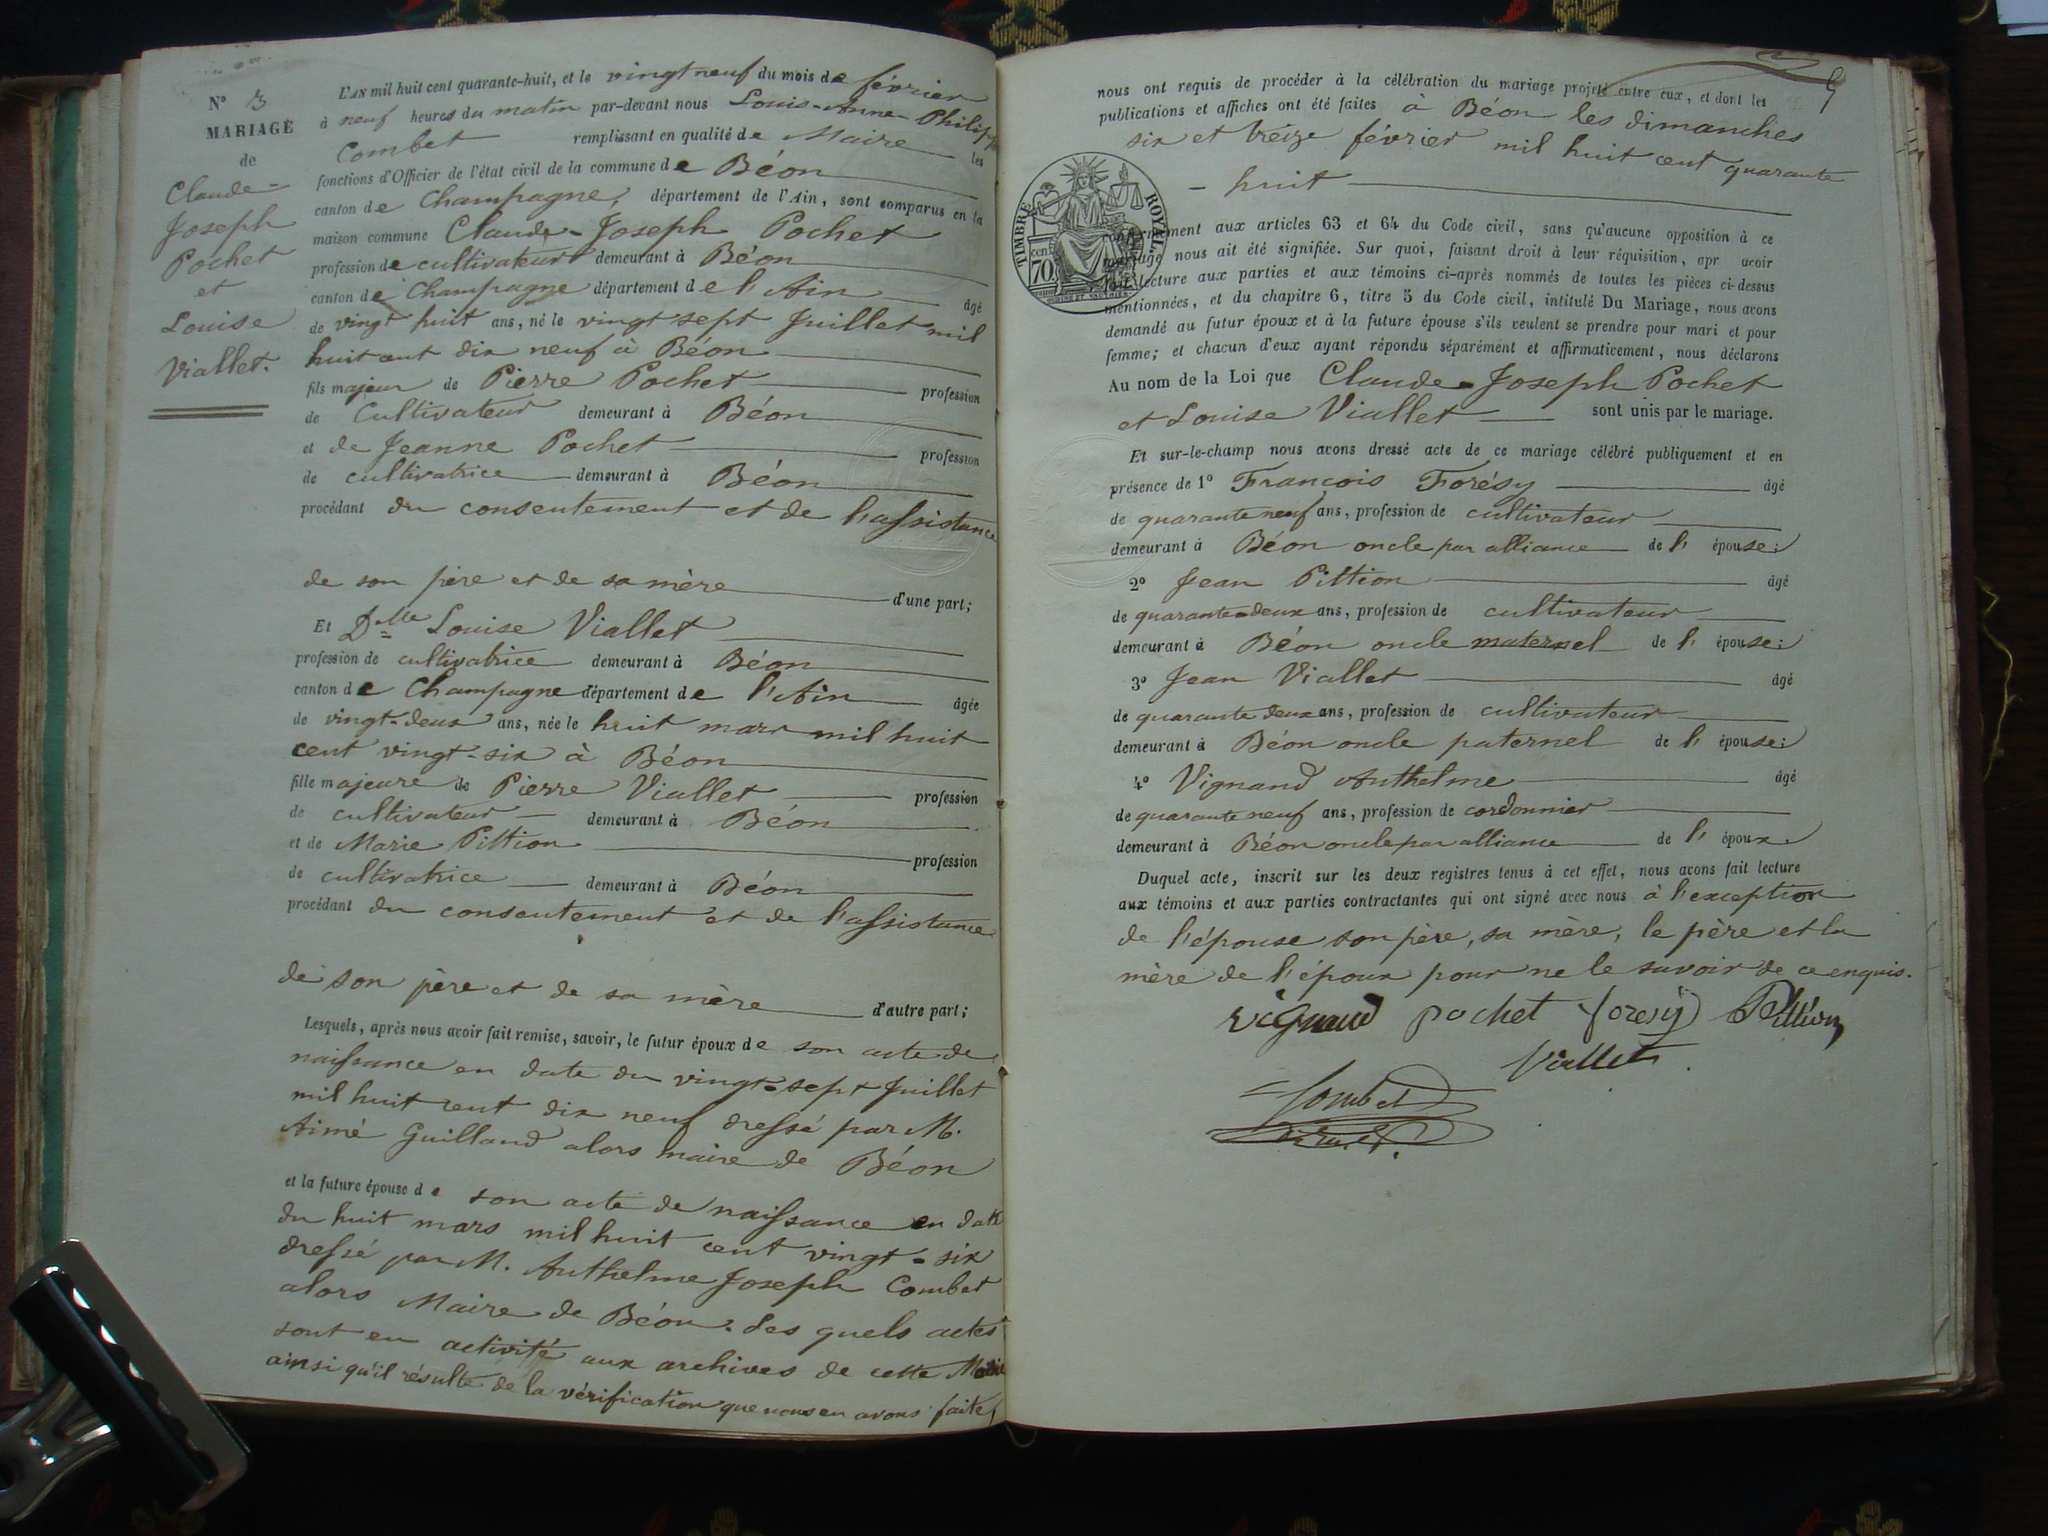 N° 3
MARIAGE
de
Claude-
Joseph
Pochet
et
Louise
Viallet.
L'AN mil huit cent quarante-huit, et le vingt neuf du mois de février
à neuf heures du matin par-devant nous Louis-Anne-Philippe
Combet remplissant en qualité de Maire les
fonctions d'Officier de l'état civil de la commune de Béon
canton de Champagne, département de l'Ain, sont comparus en la
maison commune Claude-Joseph Pochet
profession de cultivateur demeurant à Béon
canton de Champagne département de l'Ain âgé
de vingt huit ans, né le vingt sept Juillet mil
huit cent dix neuf à Béon
fils majeur de Pierre Pochet profession
de Cultivateur demeurant à Béon
et de Jeanne Pochet profession
de cultivatrice demeurant à Béon
procédant du consentement et de l'assistance
de son père et de sa mère d'une part;
Et Dlle Louise Viallet
profession de cultivatrice demeurant à Béon
canton de Champagne département de l'Ain âgée
de vingt-deux ans, née le huit mars mil huit
cent vingt-six à Béon
fille majeure de Pierre Viallet profession
de cultivateur demeurant à Béon
et de Marie Pittion profession
de cultivatrice demeurant à Béon
procédant du consentement et de l'assistance
de son père et de sa mère d'autre part;
Lesquels, après nous avoir fait remise, savoir, le futur époux de son acte de
naissance en date du vingt-sept Juillet
mil huit cent dix neuf dressé par M.
Aimé Guilland alors maire de Béon
et la future épouse de son acte de naissance en date
du huit mars mil huit cent vingt-six
dressé par M. Anthelme Joseph Combet
alors Maire de Béon. Les quels actes
sont en activité aux archives de cette Mairie
ainsi qu'il résulte de la vérification que nous en avons faite,
5
nous ont requis de procéder à la célébration du mariage projeté entre eux, et dont les
publications et affiches ont été faites à Béon les dimanches
six et treize février mil huit cent quarante
- huit
TIMBRE ROYAL
70 cen
conformément aux articles 63 et 64 du Code civil, sans qu'aucune opposition à ce
mariage nous ait été signifiée. Sur quoi, faisant droit à leur réquisition, apr avoir
fait lecture aux parties et aux témoins ci-après nommés de toutes les pièces ci-dessus
mentionnées, et du chapitre 6, titre 5 du Code civil, intitulé Du Mariage, nous avons
demandé au futur époux et à la future épouse s'ils veulent se prendre pour mari et pour
femme; et chacun d'eux ayant répondu séparément et affirmativement, nous déclarons
Au nom de la Loi que Claude-Joseph Pochet
et Louise Viallet sont unis par le mariage.
Et sur-le-champ nous avons dressé acte de ce mariage célébré publiquement et en
présence de 1° François Forésy âgé
de quarante neuf ans, profession de cultivateur
demeurant à Béon oncle par alliance de l'épouse;
2° Jean Pittion âgé
de quarante-deux ans, profession de cultivateur
demeurant à Béon oncle maternel de l'épouse;
3° Jean Viallet âgé
de quarante deux ans, profession de cultivateur
demeurant à Béon oncle paternel de l'épouse;
4° Vignand Anthelme âgé
de quarante neuf ans, profession de cordonnier
demeurant à Béon oncle par alliance de l'époux.
Duquel acte, inscrit sur les deux registres tenus à cet effet, nous avons fait lecture
aux témoins et aux parties contractantes qui ont signé avec nous à l'exception
de l'épouse son père, sa mère, le père et la
mère de l'époux pour ne le savoir de ce enquis.
Vignand pochet foresy Pittion
Viallet
Combet